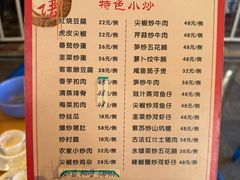 特色小炒
红烧豆腐 22元/例
虎皮尖椒 22元/例
番茄炒蛋 28元/例
韭菜炒蛋 28元/例
客家酿豆腐 32元/例
香芋扣肉 48元/例
清蒸排骨 48元/例
梅菜扣肉 48元/例
炒丝瓜 32元/例
爆炒猪肚 58元/例
炒时蔬 18元/例
农家小炒肉 32元/例
尖椒炒鸡杂 38元/例
尖椒炒牛肉 48元/例
芹菜炒牛肉 48元/例
笋炒五花腩 48元/例
萝卜炆牛腩 58元/例
咸鱼茄子煲 38元/例
紫苏炒牛肉 48元/例
豉汁蒸河鱼仔 48元/例
韭菜炒河虾仔 48元/例
紫苏炒山坑螺 38元/例
古法红炆土猪肉 58元/例
水绿菜炒五花腩 38元/例
辣椒圈炒河虾仔 48元/例